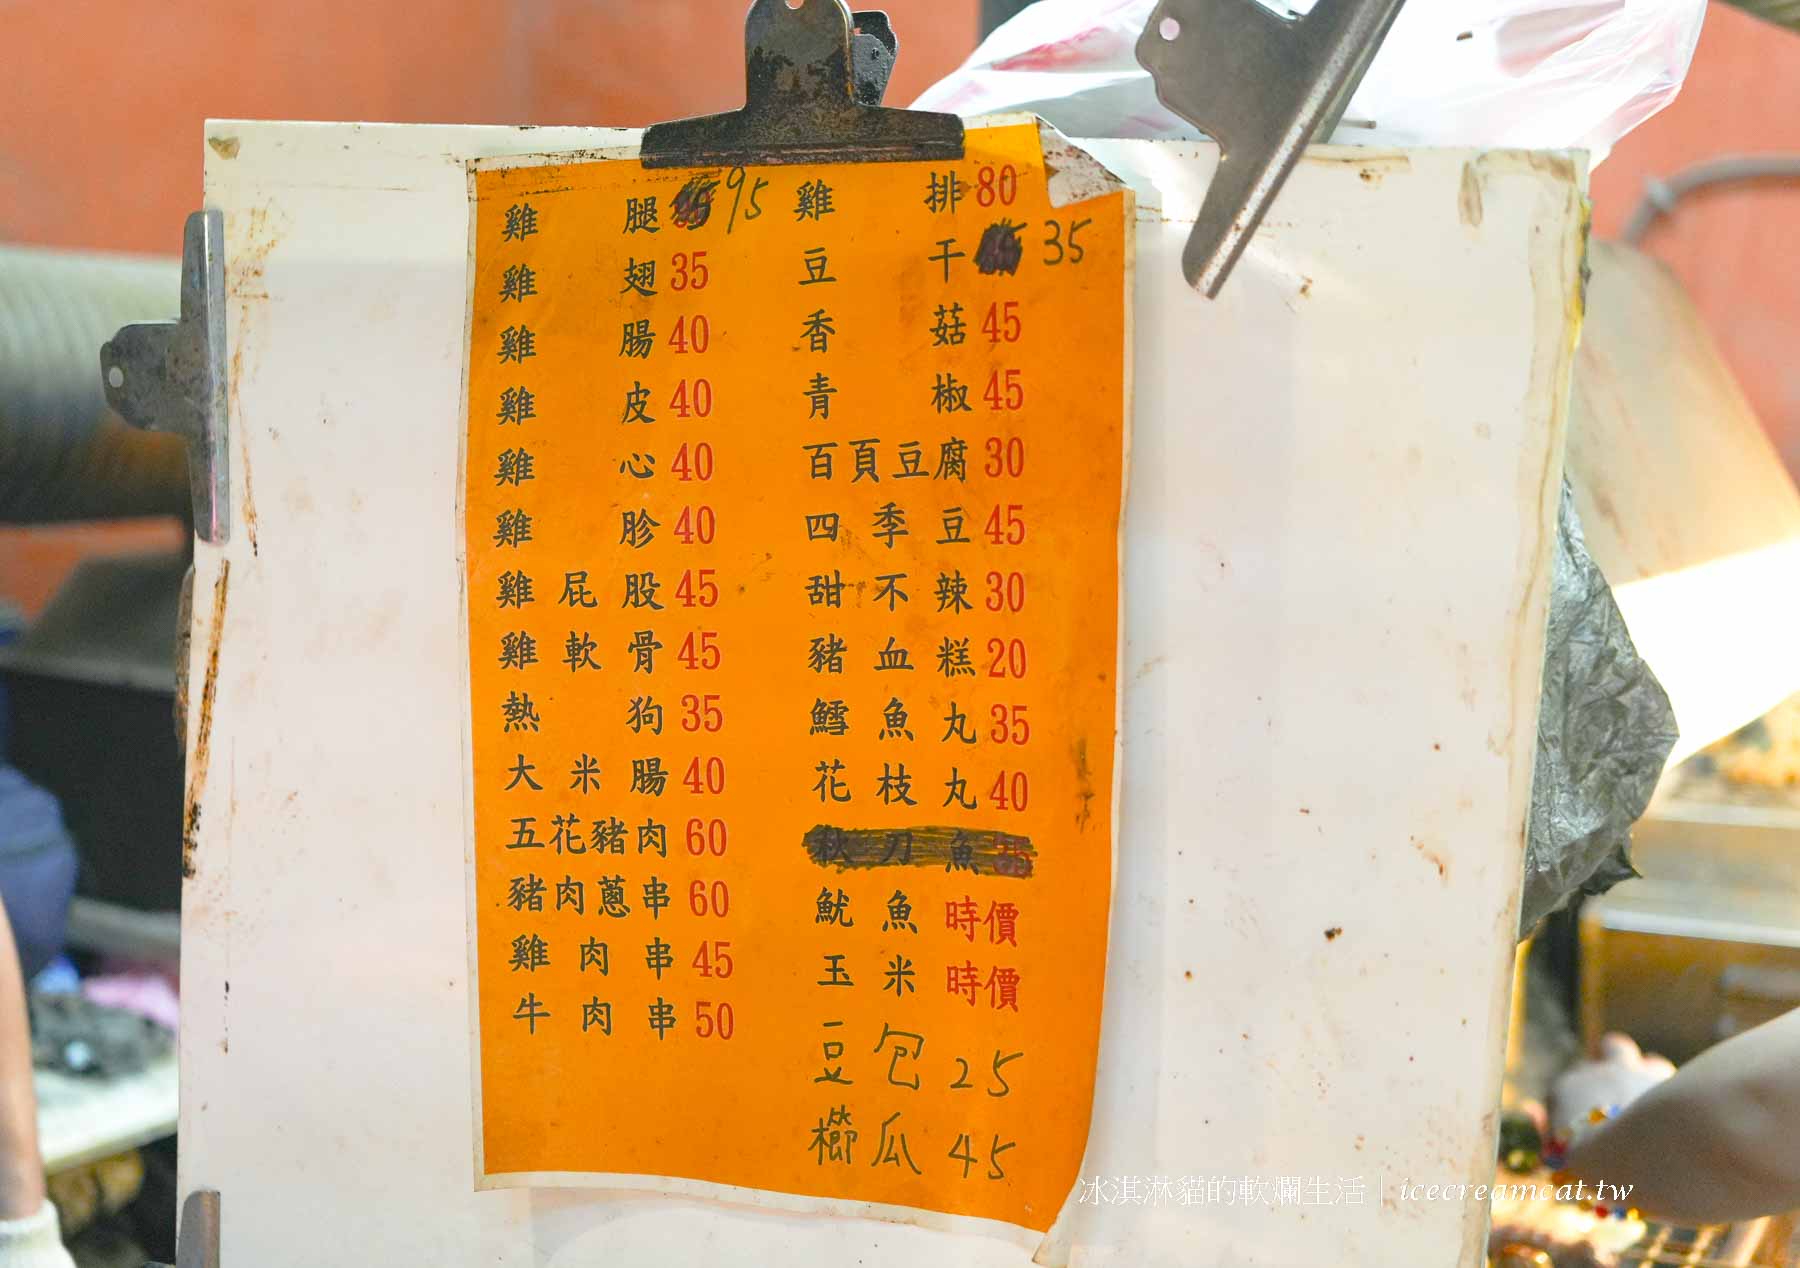 雞腿 95
雞翅 35
雞腸 40
雞皮 40
雞心 40
雞胗 40
雞屁股 45
雞軟骨 45
熱狗 35
大米腸 40
五花豬肉 60
豬肉蔥串 60
雞肉串 45
牛肉串 50
雞排 80
豆干 35
香菇 45
青椒 45
百頁豆腐 30
四季豆 45
甜不辣 30
豬血糕 20
鱈魚丸 35
花枝丸 40
秋刀魚
魷魚 時價
玉米 時價
豆包 25
櫛瓜 45
冰淇淋貓的軟爛生活｜icecreamcat.tw